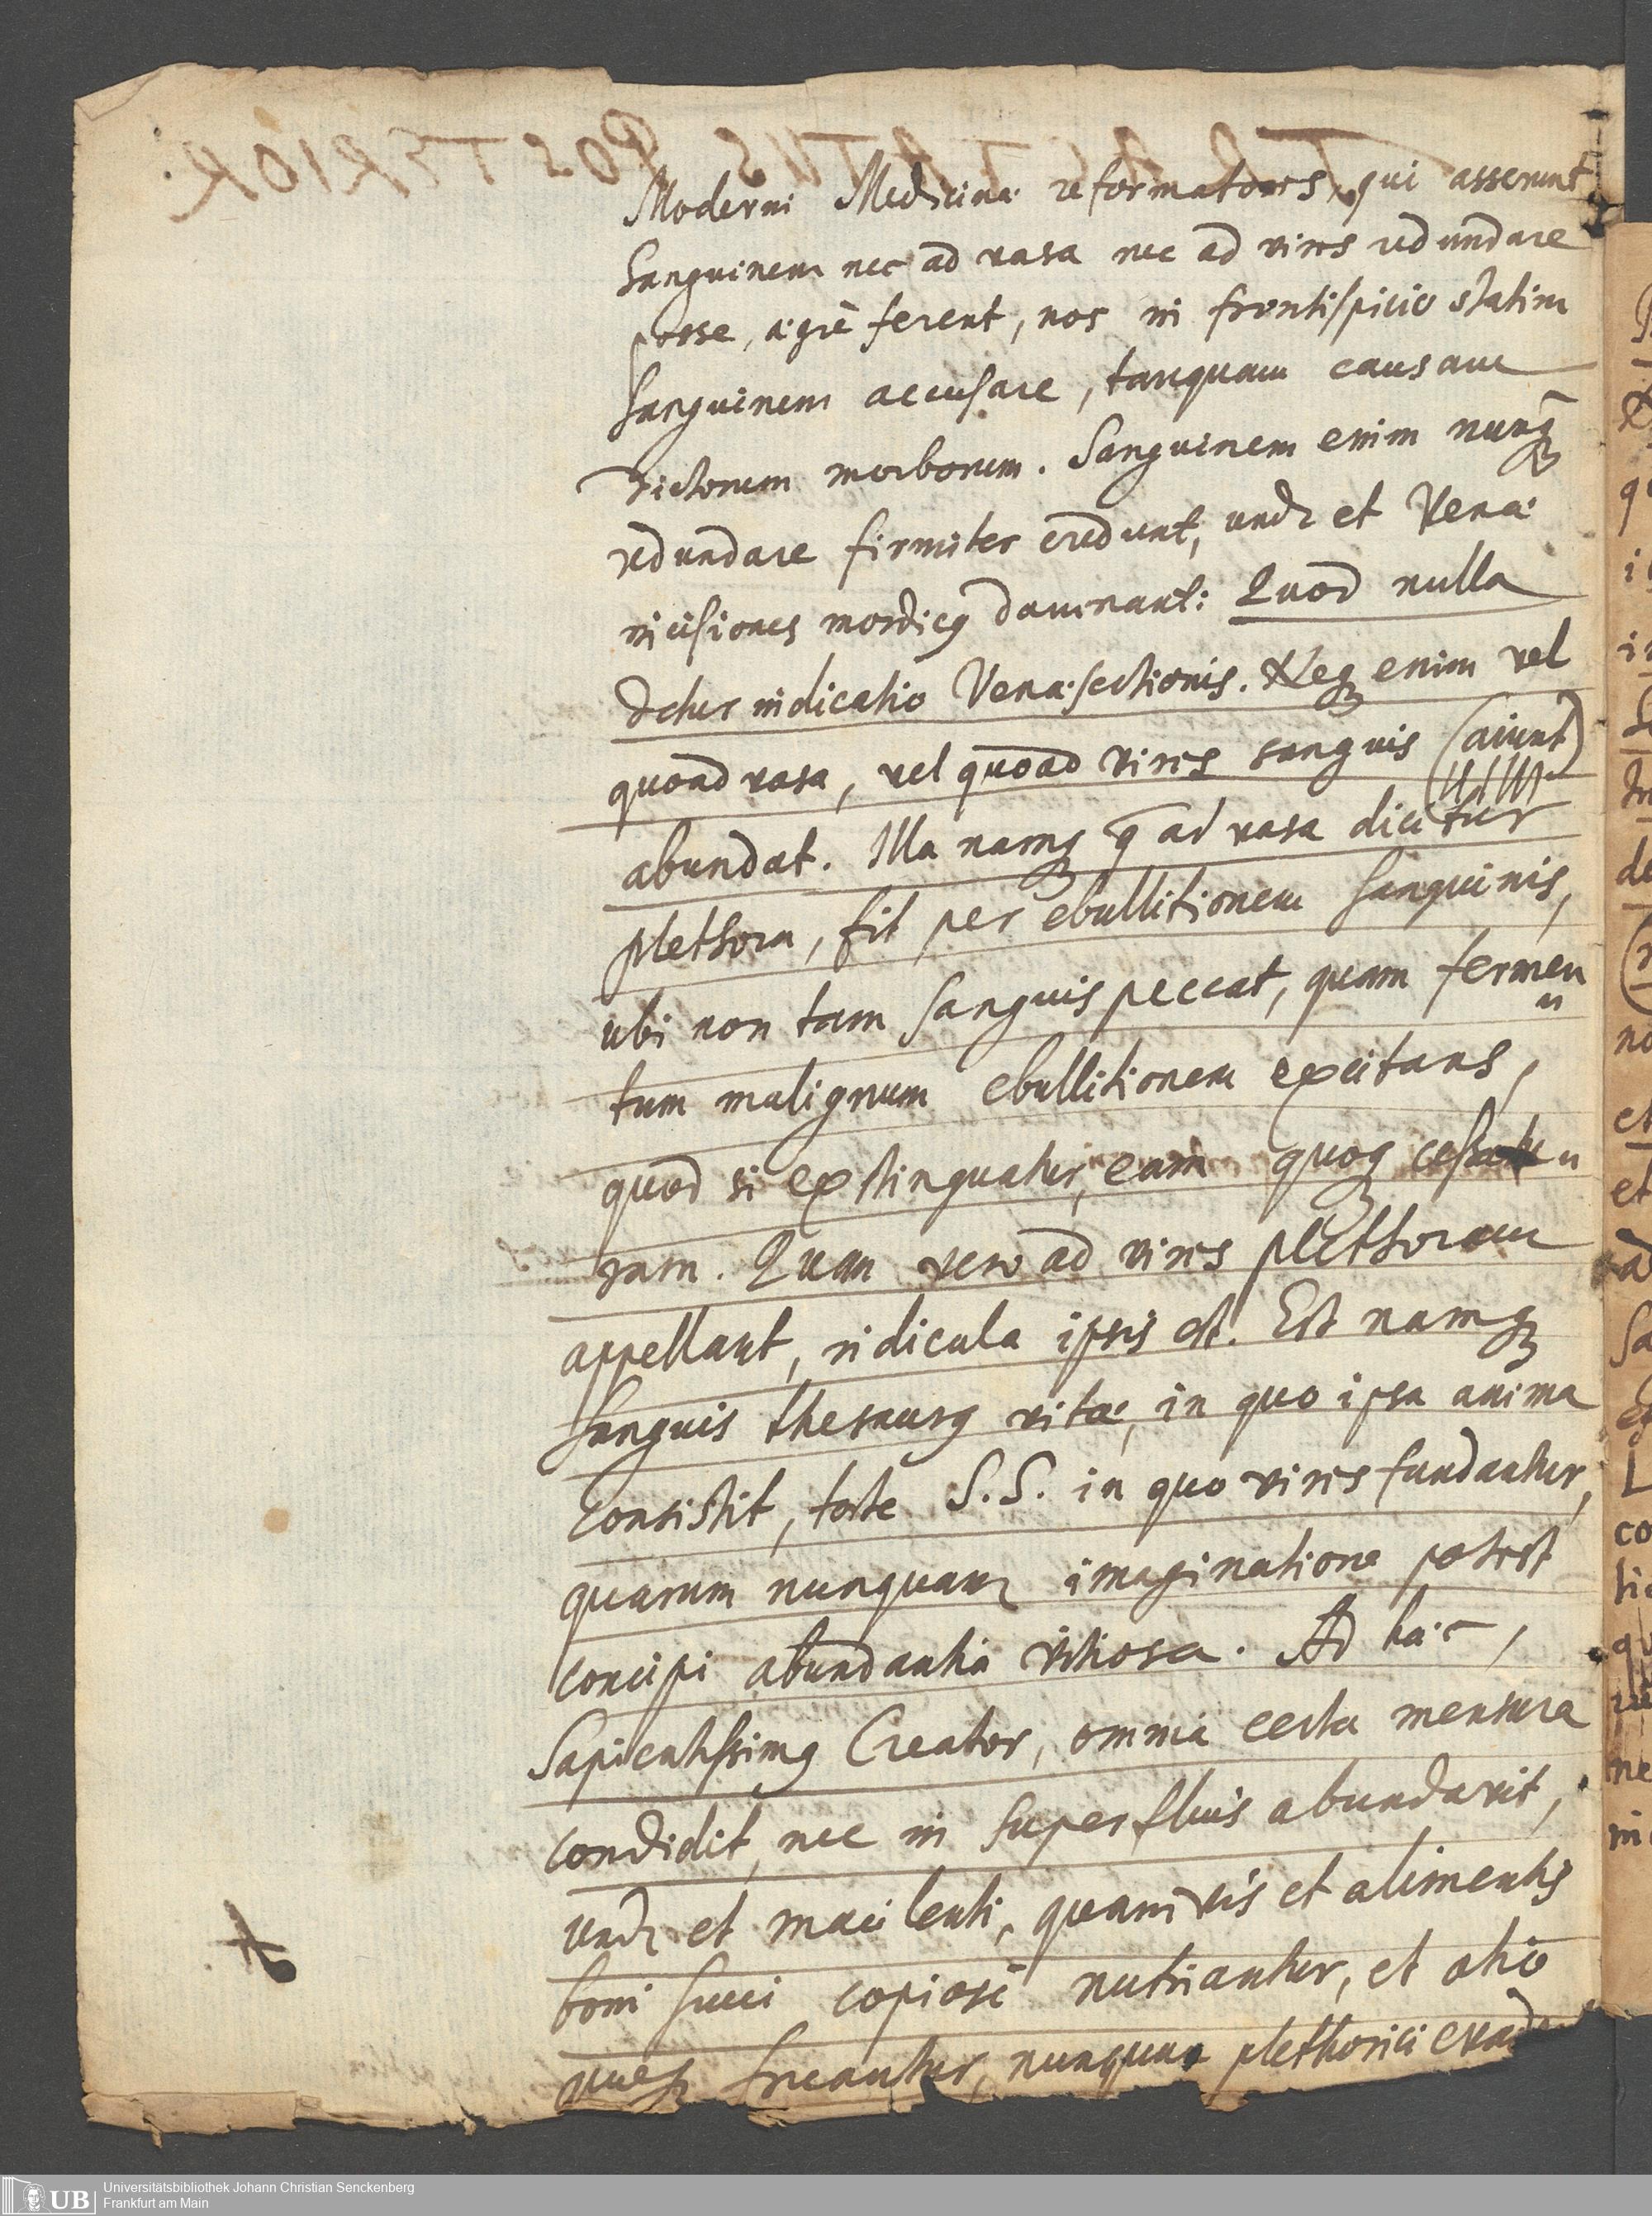 TRACTATUS POSTERIOR.
Moderni Medicinæ reformatores, qui asserunt
Sanguinem nec ad vasa nec ad vires redundare
posse, ægrè ferent, nos in frontispicio statim
Sanguinem accusare, tanquam causam
dictorum morborum. Sanguinem enim nunqꝫ
redundare firmiter credunt, undè et Venæ
incisiones mordicꝰ damnant: Quod nulla
detur indicatio Venæsectionis. Neqꝫ enim vel
quoad vasa, vel quoad vires sanguis (aiunt)
abundat. Illa namqꝫ q̄ ad vasa dicitur
plethora, fit per ebullitionem Sanguinis,
ubi non tam Sanguis peccat, quam fermen
tum malignum ebullitionem excitans,
quod si extinguatur, eam quoqꝫ cessatu
ram. Quam vero ad vires plethoram
appellant, ridicula ipsis est. Est namqꝫ
Sanguis thesaurꝰ vitæ, in quo ipsa anima
Consistit, teste S.S. in quo vires fundantur,
quarum nunquam imaginatione potest
concipi abundantia vitiosa. Ad hæc,
Sapientissimꝰ Creator, omnia certa mensura
condidit, nec in superfluis abundavit,
undè et macilenti, quamvis et alimentis
boni succi copiosè nutriantur, et otio
fruantur, nunquam plethorici
Universitätsbibliothek Johann Christian Senckenberg
Frankfurt am Main
UB